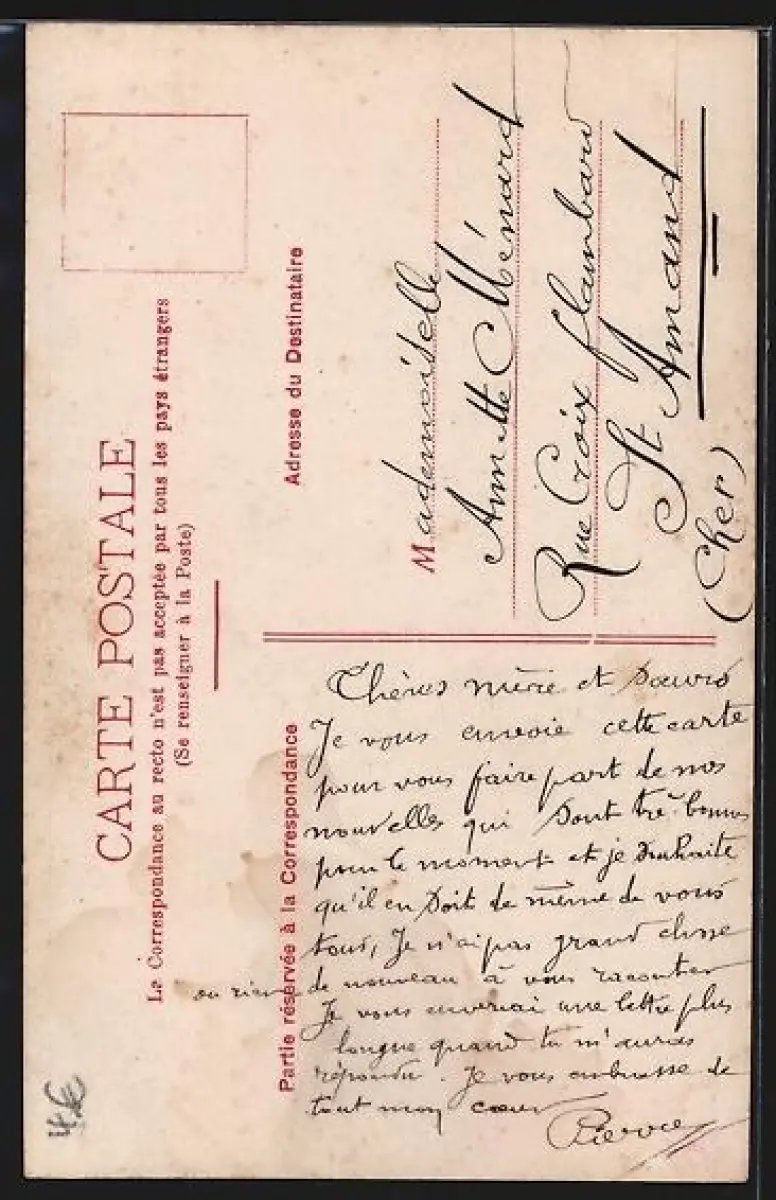 CARTE POSTALE
La Correspondance au recto n'est pas acceptée par tous les pays étrangers
(Se renseigner à la Poste)
Partie réservée à la Correspondance
Adresse du Destinataire
Chères mère et sœurs
Je vous envoie cette carte
pour vous faire part de nos
nouvelles qui sont trè-bonnes
pour le moment et je souhaite
qu'il en soit de même de vous
tous, Je n'ai pas grand chose
ou rien de nouveau à vous raconter
Je vous enverai une lettre plus
longue quand tu m'auras
répondu. Je vous embrasse de
tout mon cœur
Pierre
Mademoiselle
Annette Ménard
Rue Croix flambard
St Amand
(Cher)
4€